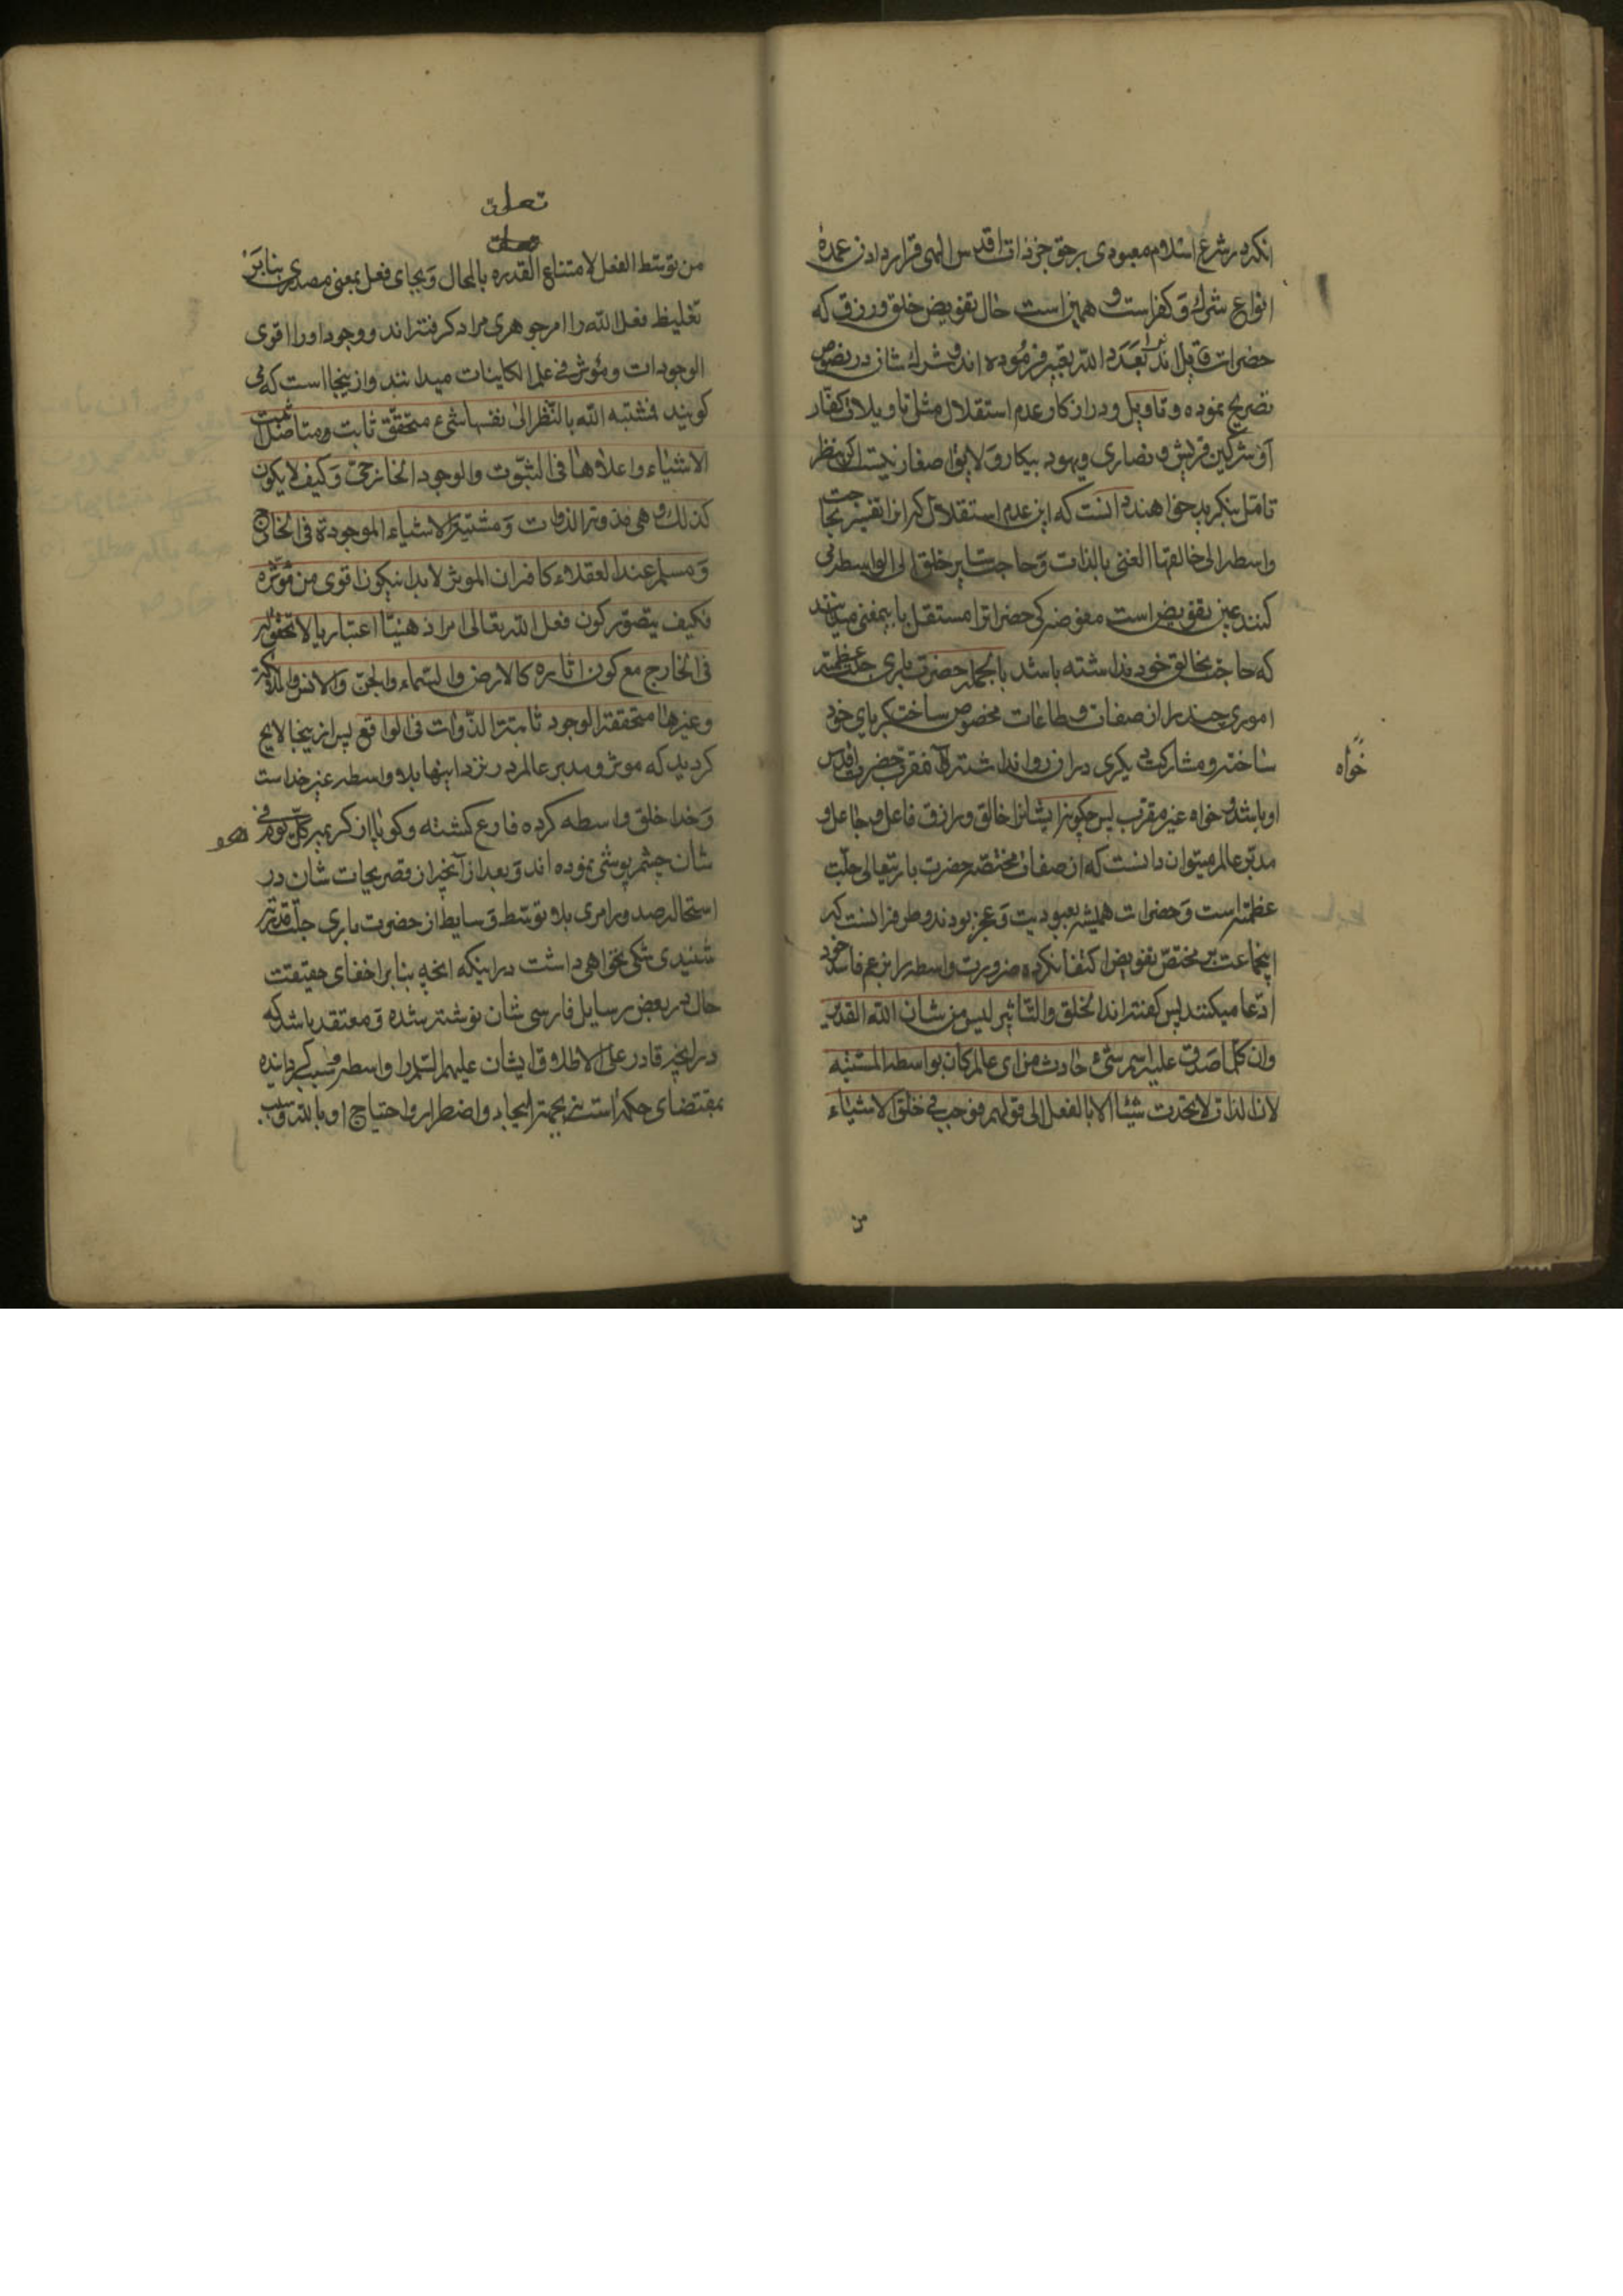 انکه در شرع اسلام معبودی برحق جز ذات اقدس الهی قرار دادن عمده
انواع شرك و کفر است و همین است حال تفویض خلق و رزق که
حضرات قایل اند تعدد الله تعبیر فرموده اند و شرك شان در نصوص
تصریح نموده و تاویل دور از کار عدم استقلال مثل تاویلات کفار
و مشرکین قریش و نصاری و یهود بیکار و لایق اصغا نیست اگر بنظر
تامل بنگرید خواهند دانست که این عدم استقلال که انرا تفسیر بحاجت
واسطه الی خالقها الغنی بالذات و حاجت سایر خلق الی الواسطه می
کنند عین تفویض است مفوضه کی حضرات را مستقل باینمعنی میدانند
که حاجت بخالق خود نداشته باشد بالجمله حضرت باری جلت عظمته
اموری چند را از صفات و طاعات مخصوص ساخت کبریای خود
ساخته و مشارکت دیگری در ان روا نداشته خواه مقرب حضرت اقدس
او باشد و خواه غیر مقرب پس چگونه ایشانرا خالق و رازق و فاعل و جاعل و
مدبر عالم میتوان دانست که از صفات مختصه حضرت باریتعالی جلت
عظمته است و حضرات همیشه بعبودیت و عجز بودند و طرفه انست که
اینجماعت بر مختص تفویض اکتفا نکرده ضرورت واسطه را بزعم فاسد خود
ادعا میکنند پس گفته اند الخلق والتاثیر لیس من شان الله القدیر
وان کلما صدق علیه اسم شیء حادث من ای عالم کان بواسطه المشیه
لان الذات لا یحدث شیئا الا بالفعل الی قولهم فوجب فی خلق الاشیاء
خواه
من
تعلق
من توسط الفعل لامتناع القدره بالمحال و بجای فعل بمعنی مصدری بنا بر
تغلیظ فعل الله را امر جوهری مراد گرفته اند و وجود او را اقوی
الوجودات و مؤثر فی علم الکاینات میدانند و از ینجا است که می
گویند فمشیه الله بالنظر الی نفسها شیء متحقق ثابت و متاصل اثبت
الاشیاء و اعلاها فی الثبوت والوجود الخارجی و کیف لا یکون
کذلك و هی مذوتة الذوات و مشیئة الاشیاء الموجودة فی الخارج
و مسلم عند العقلاء کافة ان الموثر لابد ان یکون اقوی من مؤثره
فکیف یتصور کون فعل الله تعالی امرا ذهنیا اعتباریا لا تحقق له
فی الخارج مع کون اثاره کالارض والسماء والجن والانس والملائکه
و غیرها متحققة الوجود ثابتة الذوات فی الواقع پس از ینجا لایح
گردید که موثر و مدبر عالم در نزد اینها بلا واسطه غیر خداست
و خدا خلق واسطه کرده فارغ گشته و گویا از کریمه کل یوم هو فی
شان چشم پوشی نموده اند و بعد از آنچه از تصریحات شان در
استحاله صدور امری بلا توسط وسایط از حضرت باری جلت قدرته
شنیدی شکی نخواهی داشت در اینکه انچه بنا بر اخفای حقیقت
حال در بعض رسایل فارسی شان نوشته شده و معتقد باشد که
در انچه قادر علی الاطلاق ایشان علیهم السلم را واسطه و سبب گردانیده
بمقتضای حکمت است نه بجهة ایجاد و اضطرار و احتیاج او بالله و سبب